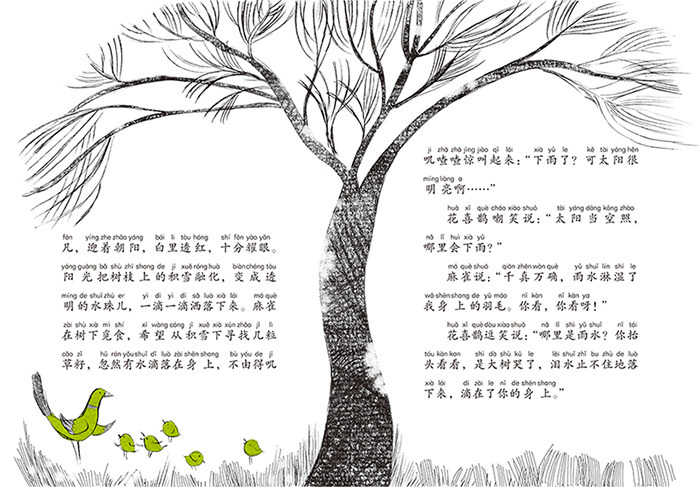 fán yíng zhe zhāo yáng bái lǐ tòu hóng shí fēn yào yǎn
凡，迎着朝阳，白里透红，十分耀眼。
yáng guāng bǎ shù zhī shang de jī xuě róng huà biàn chéng tòu
阳光把树枝上的积雪融化，变成透
míng de shuǐ zhū er yì dī yì dī sǎ luò xià lái má què
明的水珠儿，一滴一滴洒落下来。麻雀
zài shù xià mì shí xī wàng cóng jī xuě xià xún zhǎo jǐ lì
在树下觅食，希望从积雪下寻找几粒
cǎo zǐ hū rán yǒu shuǐ dī luò zài shēn shang bù yóu de jī
草籽，忽然有水滴落在身上，不由得叽
jī zhā zhā jīng jiào qǐ lái xià yǔ le kě tài yáng hěn
叽喳喳惊叫起来：“下雨了？可太阳很
míng liàng a
明亮啊……”
huā xǐ què cháo xiào shuō tài yáng dāng kōng zhào
花喜鹊嘲笑说：“太阳当空照，
nǎ lǐ huì xià yǔ
哪里会下雨？”
má què shuō qiān zhēn wàn què yǔ shuǐ lín shī le
麻雀说：“千真万确，雨水淋湿了
wǒ shēn shang de yǔ máo nǐ kàn nǐ kàn ya
我身上的羽毛。你看，你看呀！”
huā xǐ què dòu xiào shuō nǎ lǐ shì yǔ shuǐ nǐ tái
花喜鹊逗笑说：“哪里是雨水？你抬
tóu kàn kan shì dà shù kū le lèi shuǐ zhǐ bu zhù de luò
头看看，是大树哭了，泪水止不住地落
xià lái dī zài le nǐ de shēn shang
下来，滴在了你的身上。”